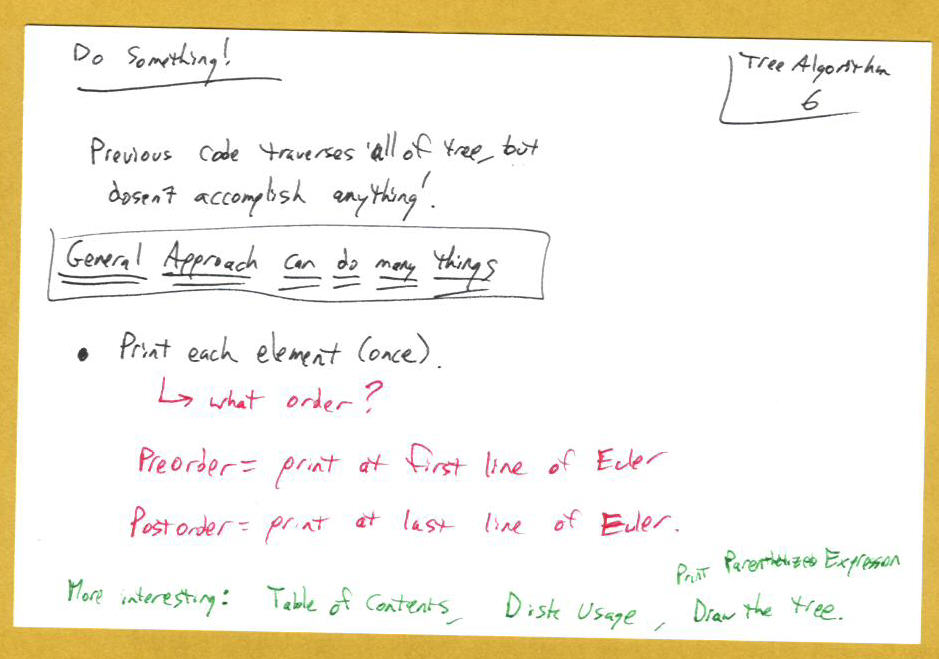 Do Something!
Tree Algorithm
6
Previous code traverses all of tree, but
dosent accomplish anything!
General Approach can do many things
• Print each element (once).
↳ what order?
Preorder = print at first line of Euler
Postorder = print at last line of Euler.
Print Parenthesized Expression
More interesting: Table of Contents, Disk Usage, Draw the tree.